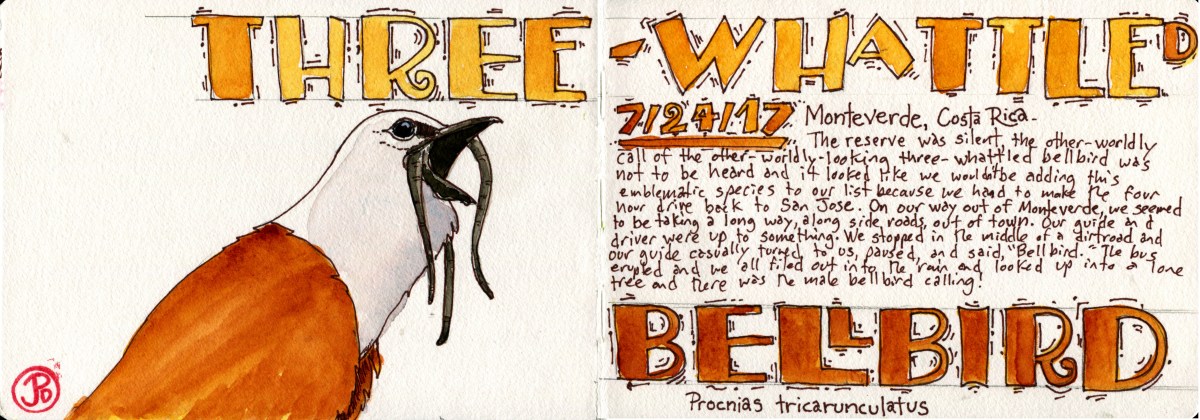 THREE-WHATTLED
7/24/17 Monteverde, Costa Rica-
The reserve was silent, the other-worldly
call of the other-worldly-looking three-whattled bellbird was
not to be heard and it looked like we wouldn't be adding this
emblematic species to our list because we had to make the four
hour drive back to San Jose. On our way out of Monteverde, we seemed
to be taking a long way, along side roads, out of town. Our guide and
driver were up to something. We stopped in the middle of a dirt road and
our guide casually turned to us, paused, and said, "Bellbird." The bus
erupted and we all filed out into the rain and looked up into a lone
tree and there was the male bellbird calling!
BELLBIRD
Procnias tricarunculatus
JPD